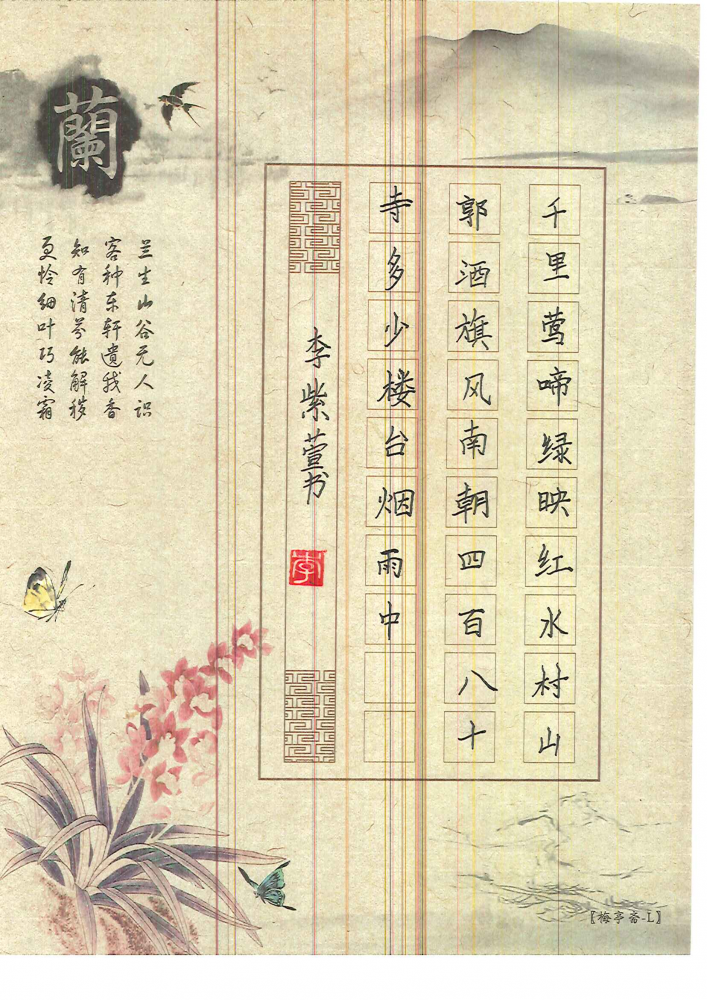 千里莺啼绿映红水村山
郭酒旗风南朝四百八十
寺多少楼台烟雨中
李紫萱书
李
蘭
兰生山谷无人识
客种东轩遗我香
知有清芬能解秽
更怜细叶巧凌霜
〖梅亭斋-L〗